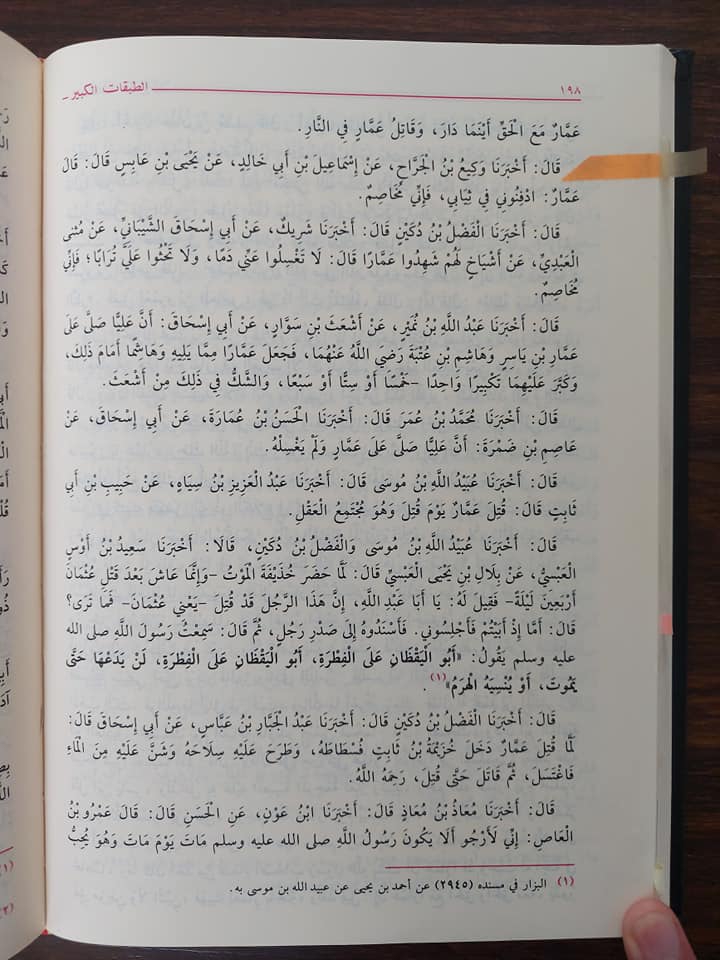 ١٩٨ الطبقات الكبير
عَمَّارٌ مَعَ الْحَقِّ أَيْنَمَا دَارَ، وَقَاتِلُ عَمَّارٍ فِي النَّارِ.
قَالَ: أَخْبَرَنَا وَكِيعُ بْنُ الْجَرَّاحِ، عَنْ إِسْمَاعِيلَ بْنِ أَبِي خَالِدٍ، عَنْ يَحْيَى بْنِ عَابِسٍ قَالَ: قَالَ
عَمَّارٌ: ادْفِنُونِي فِي ثِيَابِي، فَإِنِّي مُخَاصِمٌ.
قَالَ: أَخْبَرَنَا الْفَضْلُ بْنُ دُكَيْنٍ قَالَ: أَخْبَرَنَا شَرِيكٌ، عَنْ أَبِي إِسْحَاقَ الشَّيْبَانِيِّ، عَنْ مُثَنَّى
الْعَبْدِيِّ، عَنْ أَشْيَاخٍ لَهُمْ شَهِدُوا عَمَّارًا قَالَ: لَا تَغْسِلُوا عَنِّي دَمًا، وَلَا تَحْثُوا عَلَيَّ تُرَابًا؛ فَإِنِّي
مُخَاصِمٌ.
قَالَ: أَخْبَرَنَا عَبْدُ اللَّهِ بْنُ نُمَيْرٍ، عَنْ أَشْعَثَ بْنِ سَوَّارٍ، عَنْ أَبِي إِسْحَاقَ: أَنَّ عَلِيًّا صَلَّى عَلَى
عَمَّارِ بْنِ يَاسِرٍ وَهَاشِمِ بْنِ عُتْبَةَ رَضِيَ اللَّهُ عَنْهُمَا، فَجَعَلَ عَمَّارًا مِمَّا يَلِيهِ وَهَاشِمًا أَمَامَ ذَلِكَ،
وَكَبَّرَ عَلَيْهِمَا تَكْبِيرًا وَاحِدًا -خَمْسًا أَوْ سِتًّا أَوْ سَبْعًا، وَالشَّكُّ فِي ذَلِكَ مِنْ أَشْعَثَ.
قَالَ: أَخْبَرَنَا مُحَمَّدُ بْنُ عُمَرَ قَالَ: أَخْبَرَنَا الْحَسَنُ بْنُ عُمَارَةَ، عَنْ أَبِي إِسْحَاقَ، عَنْ
عَاصِمِ بْنِ ضَمْرَةَ: أَنَّ عَلِيًّا صَلَّى عَلَى عَمَّارٍ وَلَمْ يَغْسِلْهُ.
قَالَ: أَخْبَرَنَا عُبَيْدُ اللَّهِ بْنُ مُوسَى قَالَ: أَخْبَرَنَا عَبْدُ الْعَزِيزِ بْنُ سِيَاهٍ، عَنْ حَبِيبِ بْنِ أَبِي
ثَابِتٍ قَالَ: قُتِلَ عَمَّارٌ يَوْمَ قُتِلَ وَهُوَ مُجْتَمِعُ الْعَقْلِ.
قَالَ: أَخْبَرَنَا عُبَيْدُ اللَّهِ بْنُ مُوسَى وَالْفَضْلُ بْنُ دُكَيْنٍ، قَالَا: أَخْبَرَنَا سَعِيدُ بْنُ أَوْسٍ
الْعَبْسِيُّ، عَنْ بِلَالِ بْنِ يَحْيَى الْعَبْسِيِّ قَالَ: لَمَّا حَضَرَ حُذَيْفَةَ الْمَوْتُ -وَإِنَّمَا عَاشَ بَعْدَ قَتْلِ عُثْمَانَ
أَرْبَعِينَ لَيْلَةً- فَقِيلَ لَهُ: يَا أَبَا عَبْدِ اللَّهِ، إِنَّ هَذَا الرَّجُلَ قَدْ قُتِلَ -يَعْنِي عُثْمَانَ- فَمَا تَرَى؟
قَالَ: أَمَّا إِذْ أَبَيْتُمْ فَأَجْلِسُونِي. فَأَسْنَدُوهُ إِلَى صَدْرِ رَجُلٍ، ثُمَّ قَالَ: سَمِعْتُ رَسُولَ اللَّهِ صلى الله
عليه وسلم يَقُولُ: «أَبُو الْيَقْظَانِ عَلَى الْفِطْرَةِ، أَبُو الْيَقْظَانِ عَلَى الْفِطْرَةِ، لَنْ يَدَعَهَا حَتَّى
يَمُوتَ، أَوْ يُنْسِيَهُ الْهَرَمُ»(١).
قَالَ: أَخْبَرَنَا الْفَضْلُ بْنُ دُكَيْنٍ قَالَ: أَخْبَرَنَا عَبْدُ الْجَبَّارِ بْنُ عَبَّاسٍ، عَنْ أَبِي إِسْحَاقَ قَالَ:
لَمَّا قُتِلَ عَمَّارٌ دَخَلَ خُزَيْمَةُ بْنُ ثَابِتٍ فُسْطَاطَهُ، وَطَرَحَ عَلَيْهِ سِلَاحَهُ وَشَنَّ عَلَيْهِ مِنَ الْمَاءِ
فَاغْتَسَلَ، ثُمَّ قَاتَلَ حَتَّى قُتِلَ، رَحِمَهُ اللَّهُ.
قَالَ: أَخْبَرَنَا مُعَاذُ بْنُ مُعَاذٍ قَالَ: أَخْبَرَنَا ابْنُ عَوْنٍ، عَنِ الْحَسَنِ قَالَ: قَالَ عَمْرُو بْنُ
الْعَاصِ: إِنِّي لَأَرْجُو أَلَا يَكُونَ رَسُولُ اللَّهِ صلى الله عليه وسلم مَاتَ يَوْمَ مَاتَ وَهُوَ يُحِبُّ
(١) البزار في مسنده (٢٩٤٥) عن أحمد بن يحيى عن عبيد الله بن موسى به.